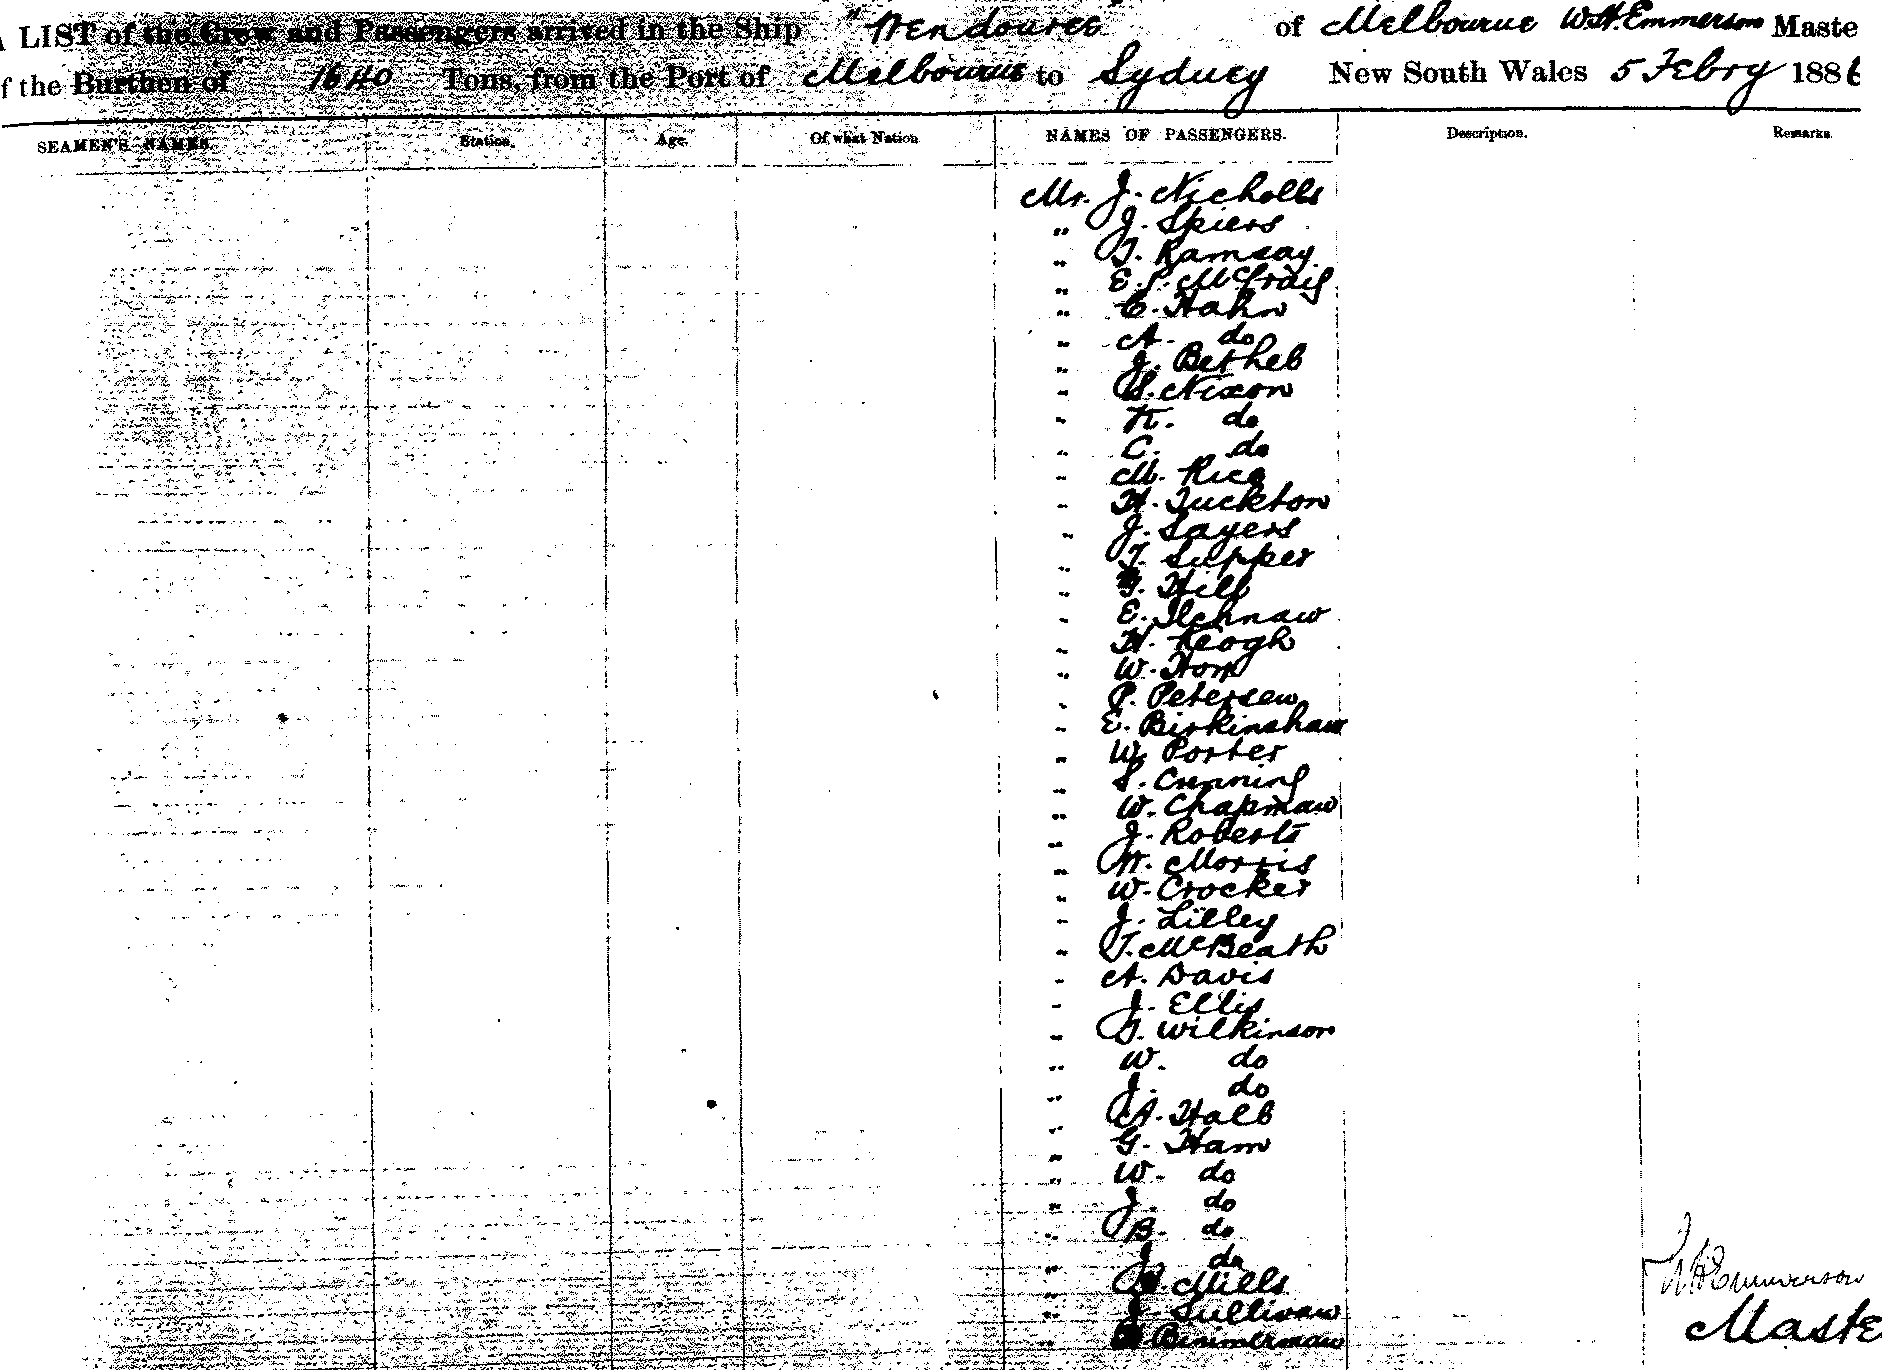 LIST of the Crew and Passengers arrived in the Ship "Wendouree" of Melbourne W.H. Emmerson Maste
f the Burthen of 1640 Tons, from the Port of Melbourne to Sydney New South Wales 5 Febry 1886
SEAMEN'S NAMES. Station. Age. Of what Nation NAMES OF PASSENGERS. Description. Remarks.
Mr. J. Nicholls
" J. Spiers
" T. Ramsay
" E. S. McCraig
" C. Hahn
" A. do
" J. Betheb
" S. Nixon
" K. do
" C. do
" M. Rice
" H. Tuckton
" J. Sayers
" T. Supper
" G. Hill
" E. Ilchnaw
" H. Keogh
" W. Hom
" P. Petersen
" E. Birkinshaw
" W. Porter
" S. Cunning
" W. Chapman
" J. Roberts
" W. Morris
" W. Crocker
" J. Lilley
" T. McBeath
" A. Davis
" J. Ellis
" T. Wilkinson
" W. do
" J. do
" A. Halb
" G. Ham
" W. do
" J. do
" B. do
" J. do
" Mills
" J. Sullivan
" Bimmerman
W H Emmerson
Maste